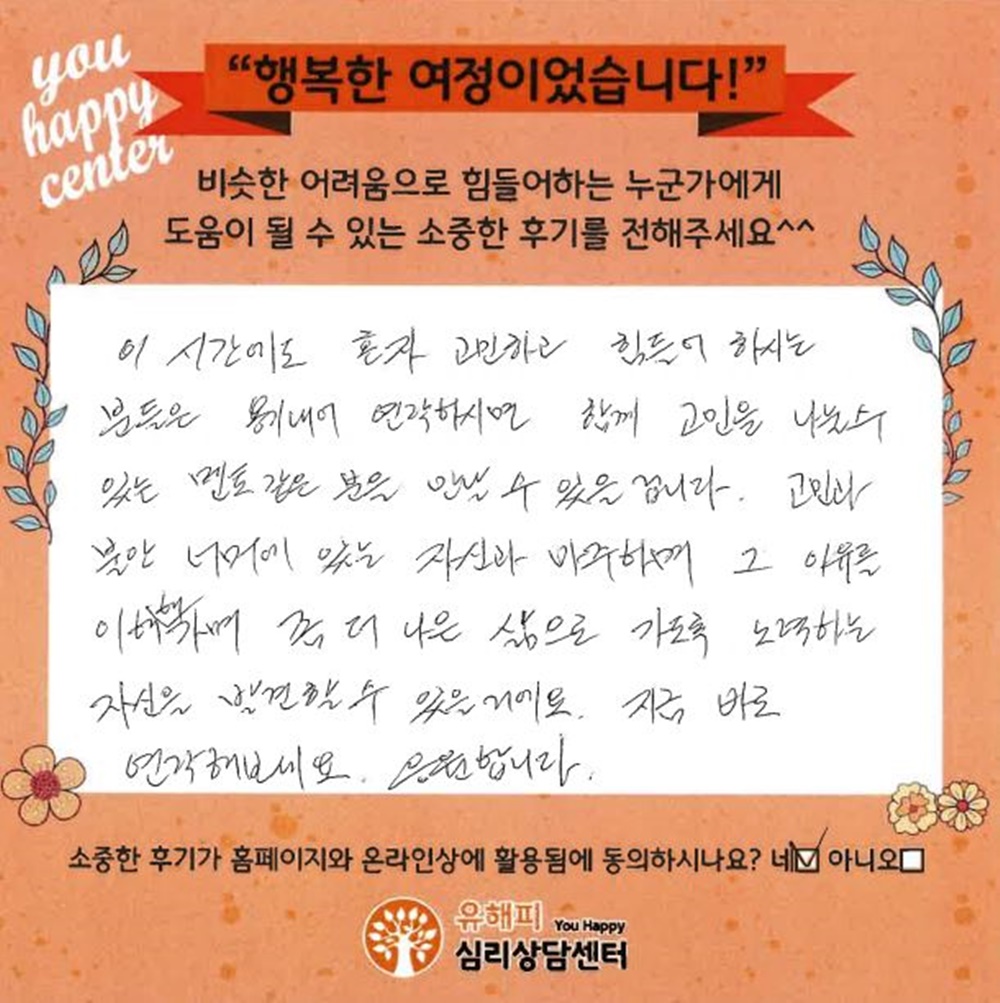 you
happy
center
“행복한 여정이었습니다!”
비슷한 어려움으로 힘들어하는 누군가에게
도움이 될 수 있는 소중한 후기를 전해주세요^^
이 시간에도 혼자 고민하고 힘들어 하시는
분들은 용기내어 연락하시면 함께 고민을 나눌수
있는 멘토같은 분을 만날 수 있을겁니다. 고민과
불안 너머에 있는 자신과 마주하며 그 이유를
이해하며 좀 더 나은 삶으로 가도록 노력하는
자신을 발견할 수 있을거에요. 지금 바로
연락해보세요. 응원합니다.
소중한 후기가 홈페이지와 온라인상에 활용됨에 동의하시나요? 네☑ 아니오☐
유해피 You Happy
심리상담센터